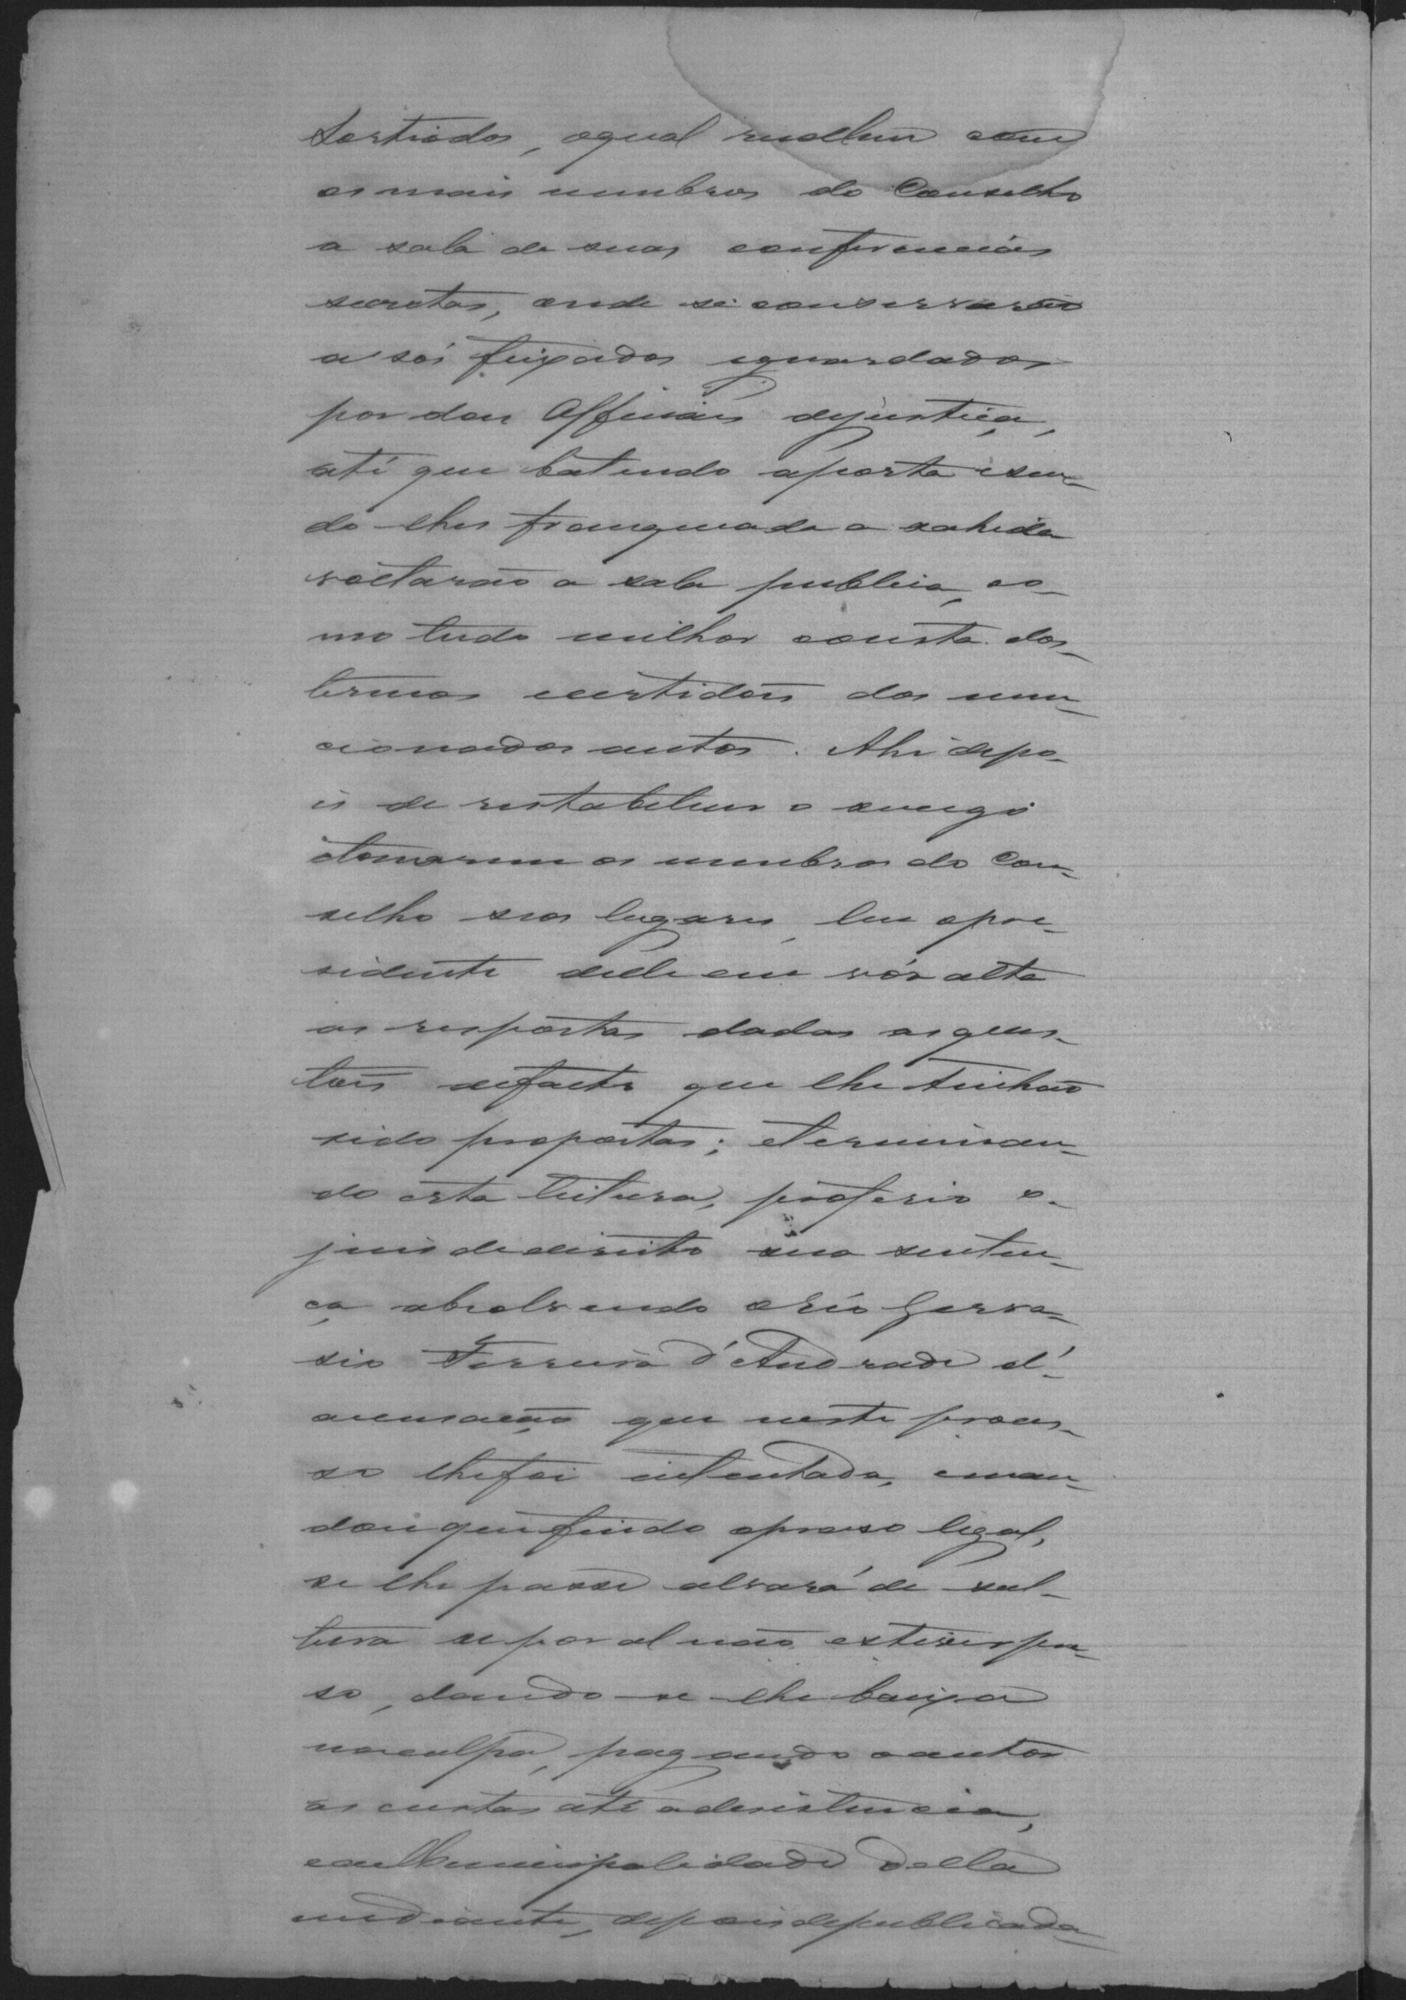 Sortiados, oqual recolheu com
os mais membros do Conselho
a sala de suas conferencias
secretas, onde se conservarão
a sós feixados eguardados
por dous Officiais dejustiça,
até que batendo aporta esen-
do lhes franqueada a sahida
voltarão a sala publica, co-
mo tudo milhor consta dos
termos ecertidões dos men-
cionados autos. Ahi depo-
is de restabelecer o
etomarem os membros do Con-
selho seos lugares, leu opre-
sidente delle em vóz alta
as respostas dadas as ques-
tões defacto que lhe tinhão
sido propostas; eterminan-
do esta leitura, proferio o
juis dedireito sua senten-
ça absolvendo oréo Gerva-
sio Ferreira d'Andrade d'
acusação que neste proces-
so lhefoi intentada, eman-
dou quefindo opraso legal,
se lhe passe alvará de sol-
tura se por al não estiver pre-
so, dando-se-lhe baixa
naculpa, pagando oautor
as custas até adesistencia,
eaMunicipalidade della
emdiante, depois depublicada